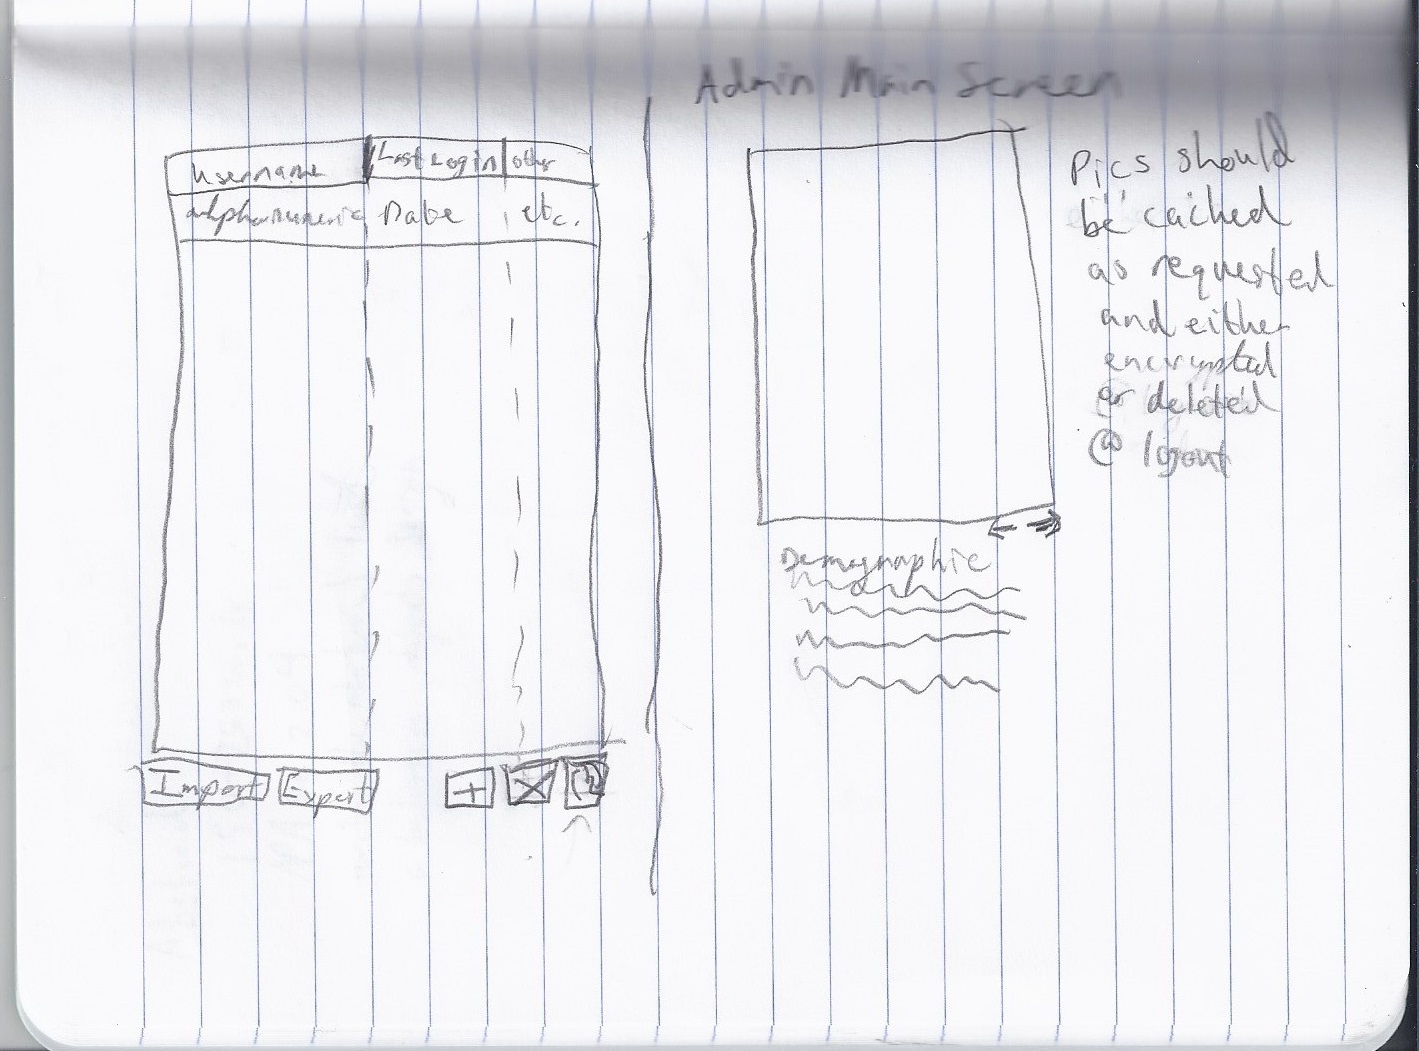 Admin Main Screen
Username Last Login other
alphanumeric Date etc.
Import Export
Pics should
be cached
as requested
and either
encrypted
or deleted
@ logout
Demographic